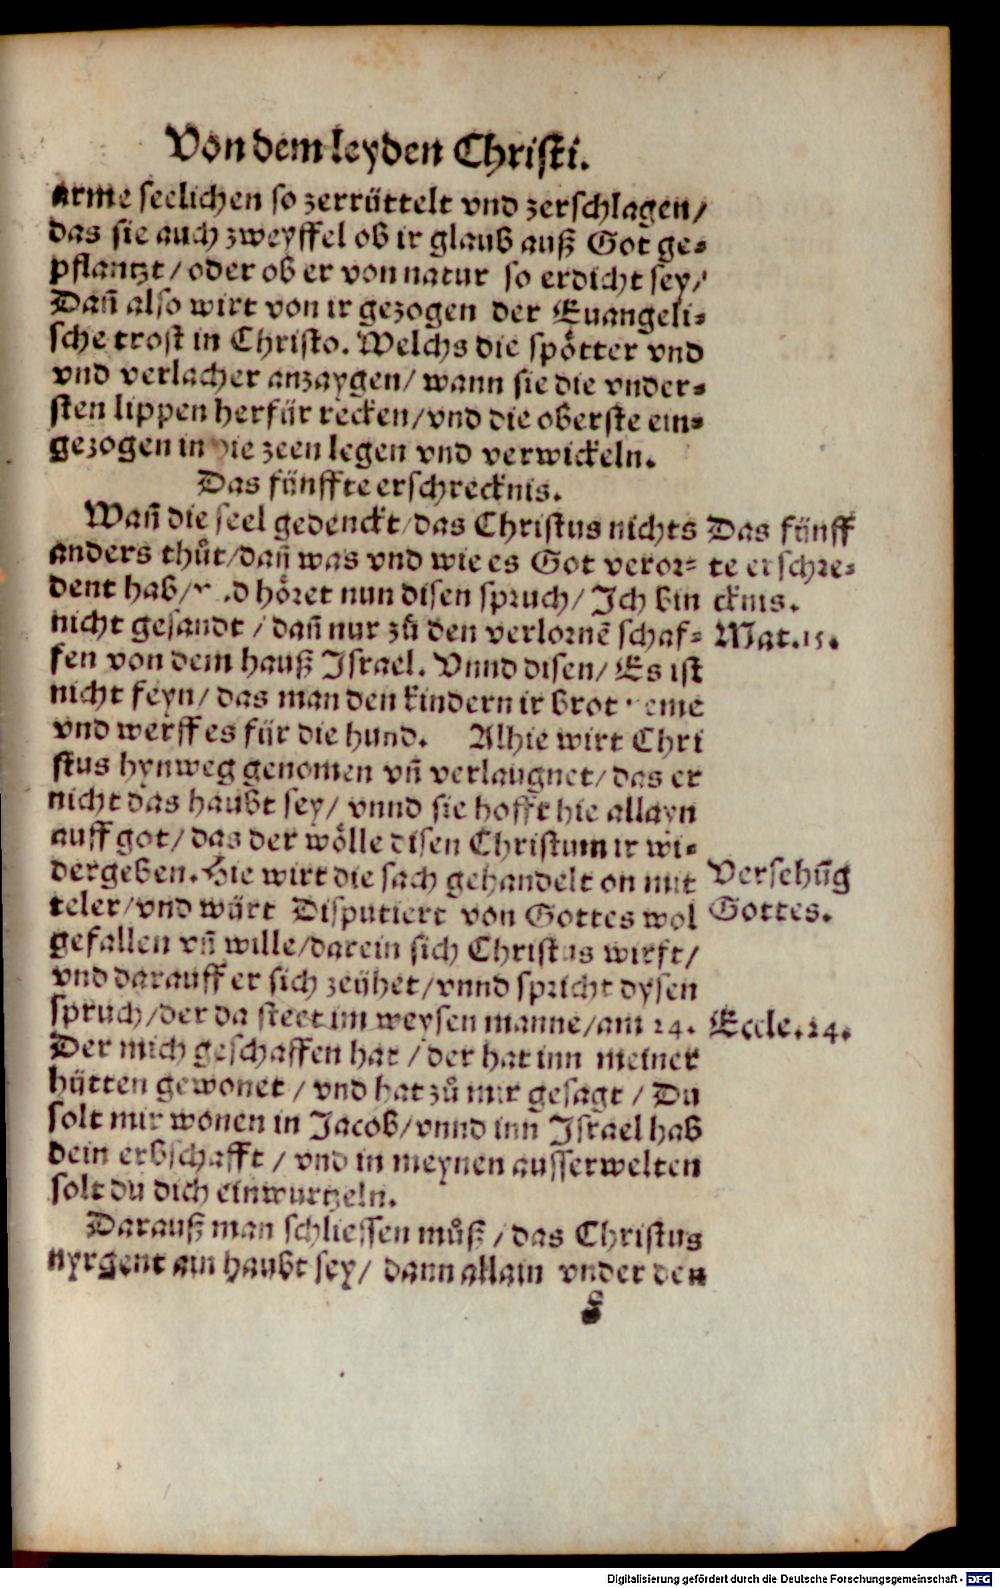 Von dem leyden Christi.
arme seelichen so zerrüttelt vnd zerschlagen/
das sie auch zweyffel ob ir glaub auß Got ge⸗
pflantzt / oder ob er von natur so erdicht sey/
Dañ also wirt von ir gezogen der Euangeli⸗
sche trost in Christo. Welchs die spötter vnd
vnd verlacher anzaygen/ wann sie die vnder⸗
sten lippen herfür recken/vnd die oberste ein⸗
gezogen in die zeen legen vnd verwickeln.
Das fünffte erschrecknis.
Wañ die seel gedenckt/das Christus nichts
anders thůt/dañ was vnd wie es Got veror⸗
dent hab/ vnd höret nun disen spruch/ Ich bin
nicht gesandt / dañ nur zů den verlornē schaf⸗
fen von dem hauß Israel. Vnnd disen/ Es ist
nicht feyn/ das man den kindern ir brot neme
vnd werff es für die hund. Alhie wirt Chri
stus hynweg genomen vñ verlaugnet/ das er
nicht das haubt sey/ vnnd sie hofft hie allayn
auff got/ das der wölle disen Christum ir wi⸗
dergeben. Hie wirt die sach gehandelt on mit
teler/vnd würt Disputiert von Gottes wol
gefallen vñ wille/darein sich Christus wirft/
vnd darauff er sich zeühet/vnnd spricht dysen
spruch/der da steet im weysen manne/am 24.
Der mich geschaffen hat / der hat inn meiner
hütten gewonet / vnd hat zů mir gesagt / Du
solt mir wonen in Jacob/vnnd inn Israel hab
dein erbschafft / vnd in meynen ausserwelten
solt du dich einwurtzeln.
Darauß man schliessen můß / das Christus
nyrgent ain haubt sey/ dann allain vnder den
Das fünff
te erschre⸗
cknis.
Mat.15.
Versehūg
Gottes.
Eccle.24.
Digitalisierung gefördert durch die Deutsche Forschungsgemeinschaft - DFG